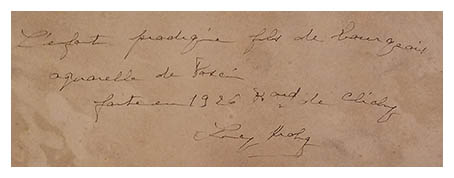 L'enfant prodigue fils de bourgeois
aquarelle de Pascin
faite en 1926 Bard de Clichy
Lucy Krohg